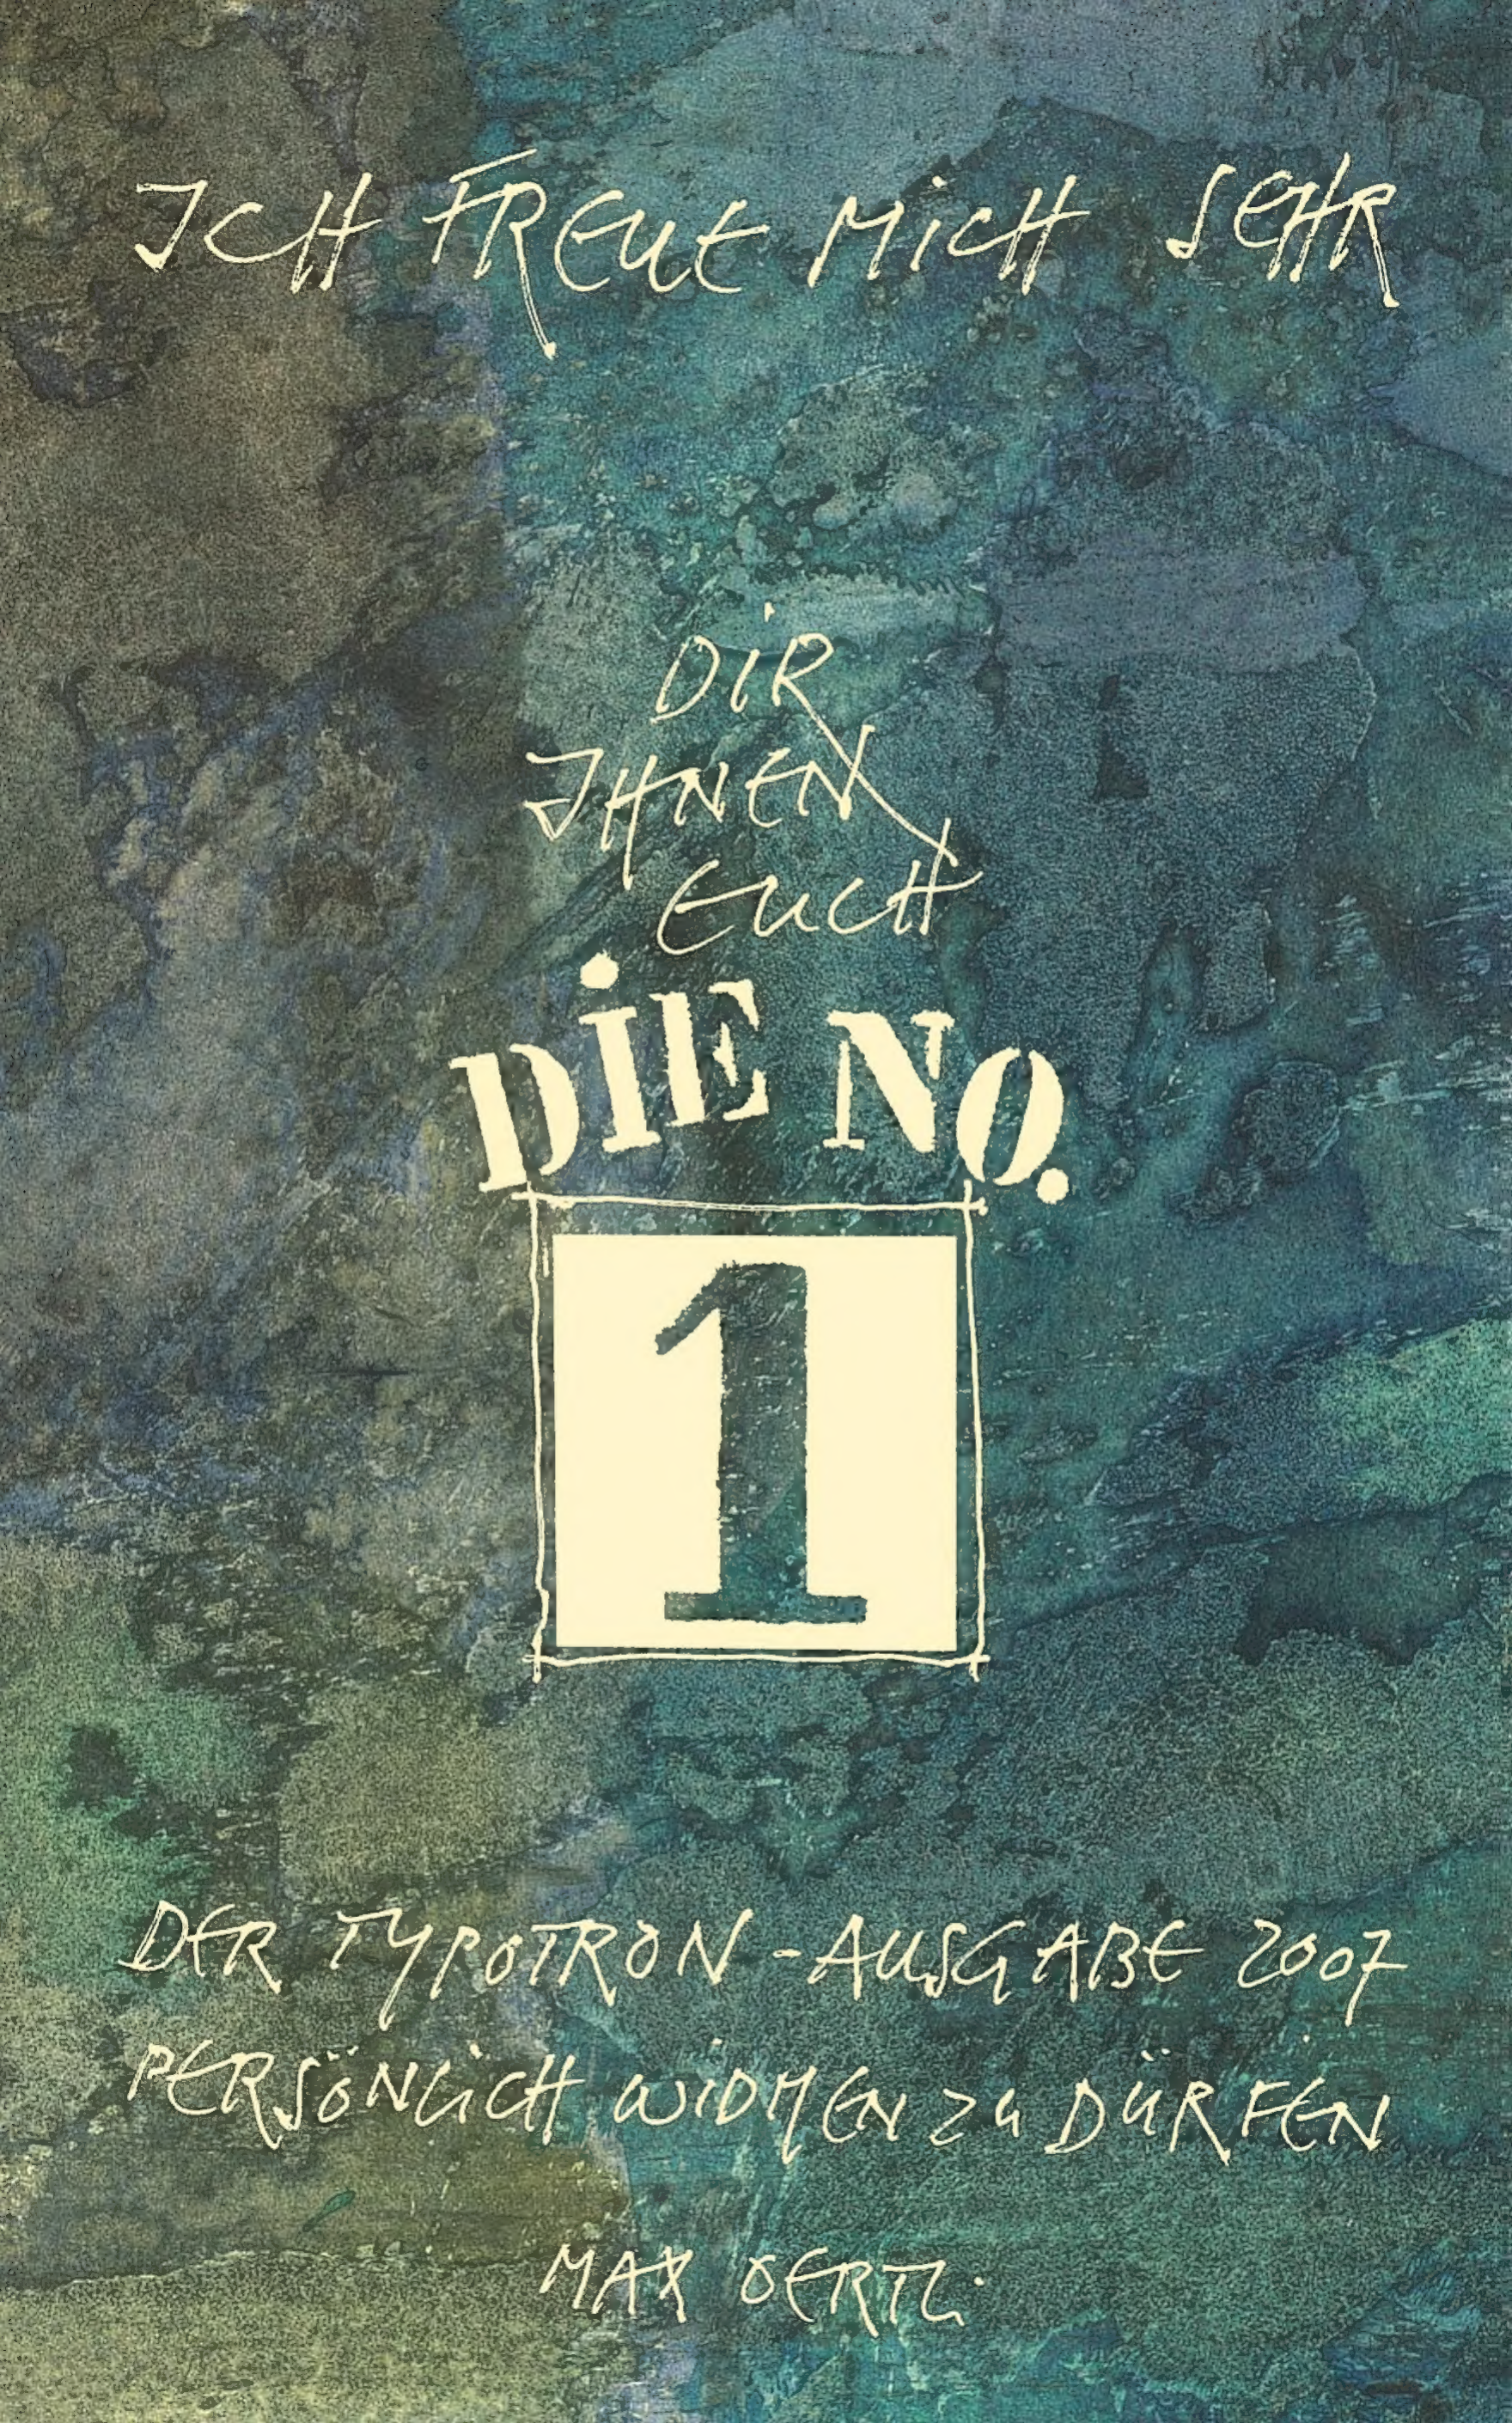 ICH FREUE MICH SEHR
DIR
IHNEN
EUCH
DIE NO.
1
DER TYPOTRON-AUSGABE 2007
PERSÖNLICH WIDMEN ZU DÜRFEN
MAX OERTLI